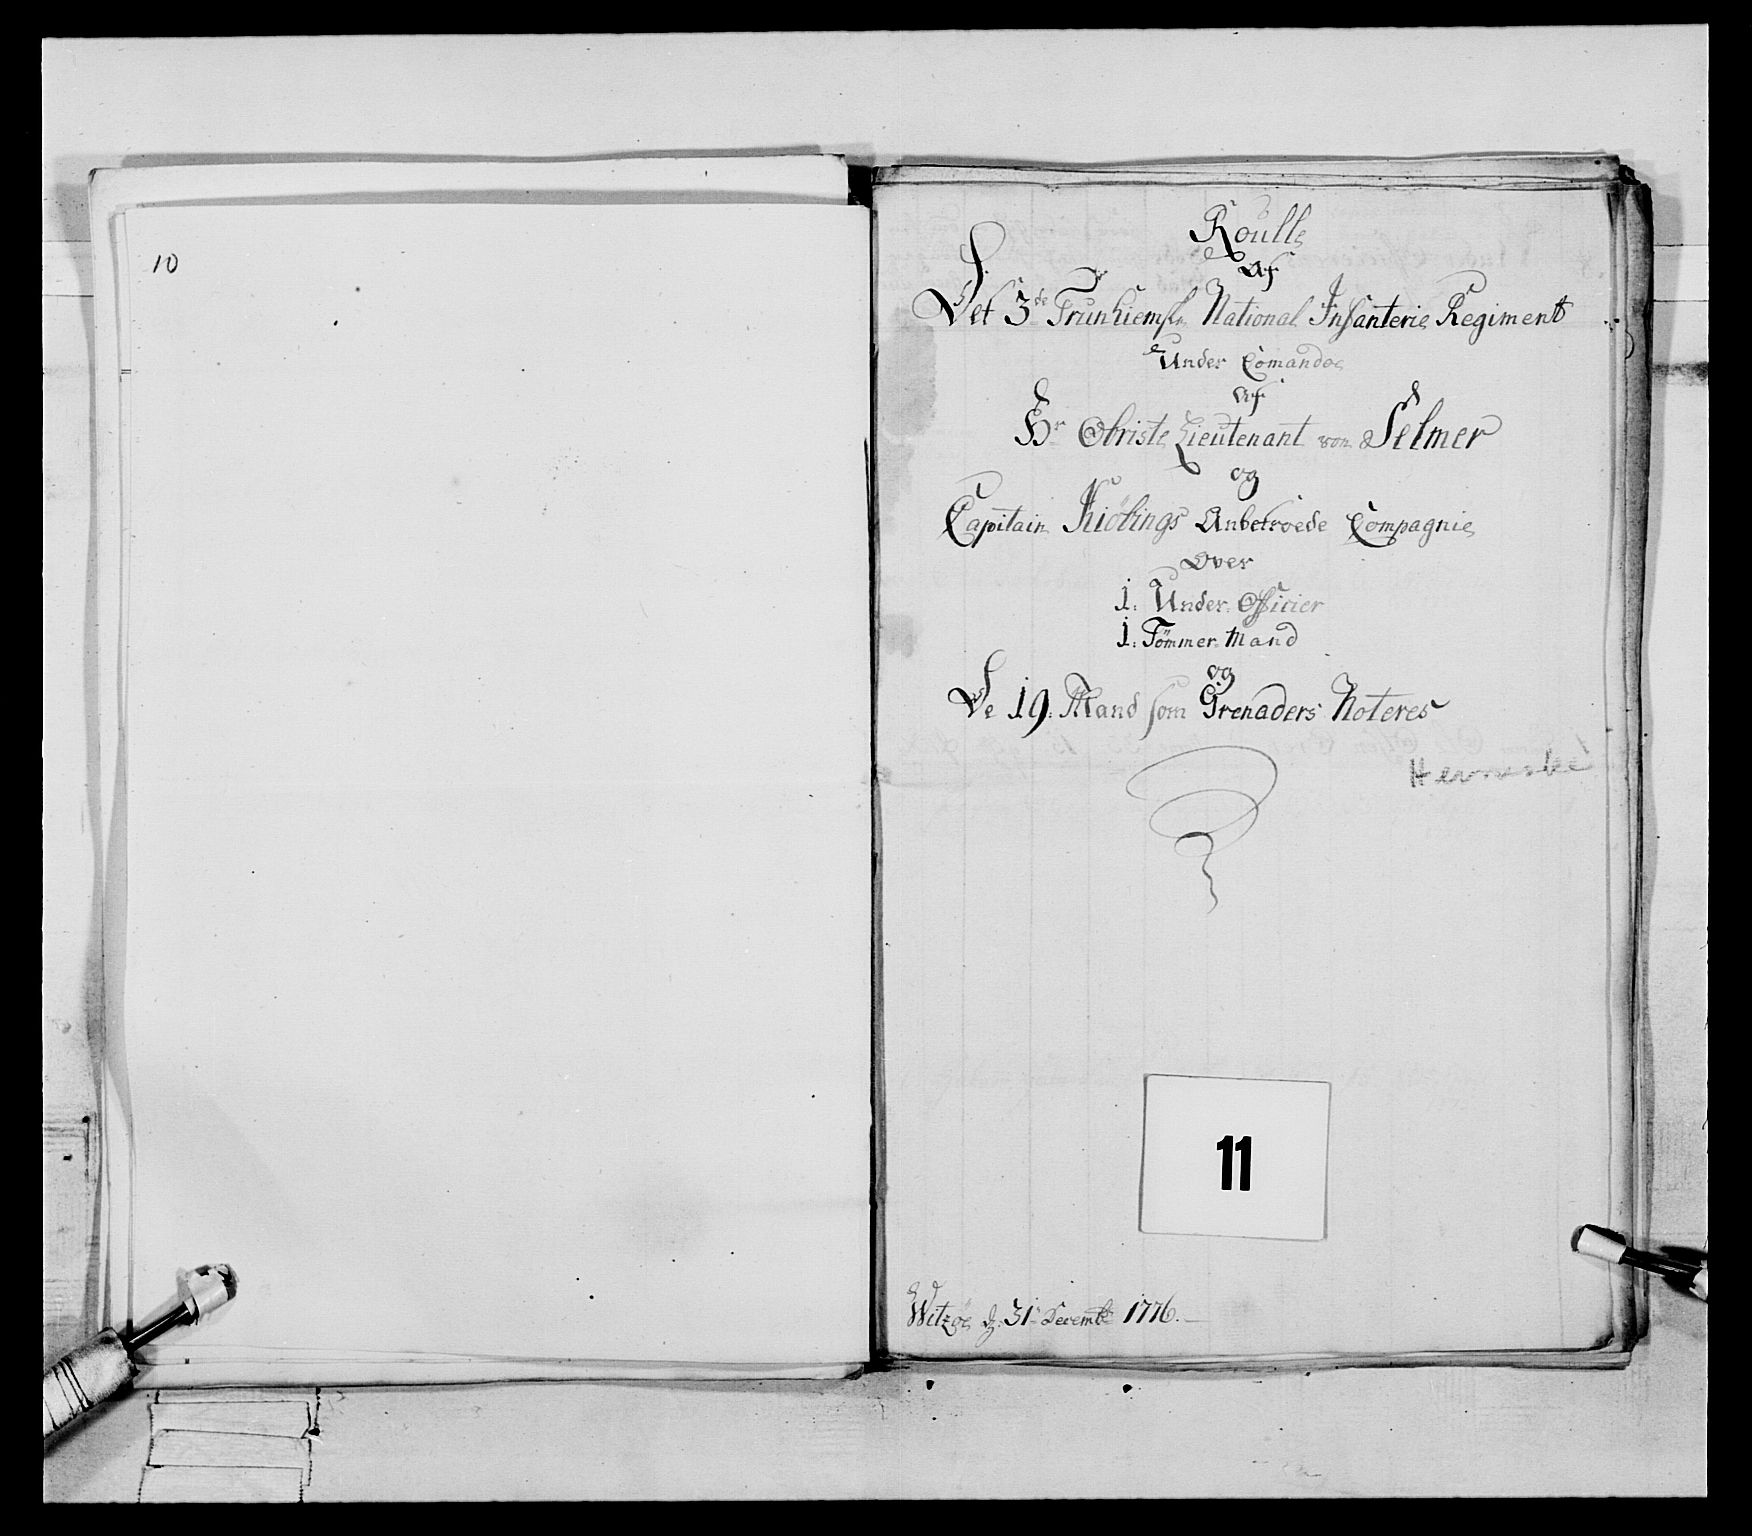 10
Roulle
Af
Det 3de Trunhiemske National Infanterie Regiment
Under Comandoe
Af
Hr Obriste Lieutenant von Selmer
og
Capitain Kiöbings Anbetroede Compagnie
Over
1: Under-Officier
1: Tömmer-Mand
og
De 19: Mand som Grenaders Noteres
Hevneske
11
Witzöe d: 31te Decembr 1776.